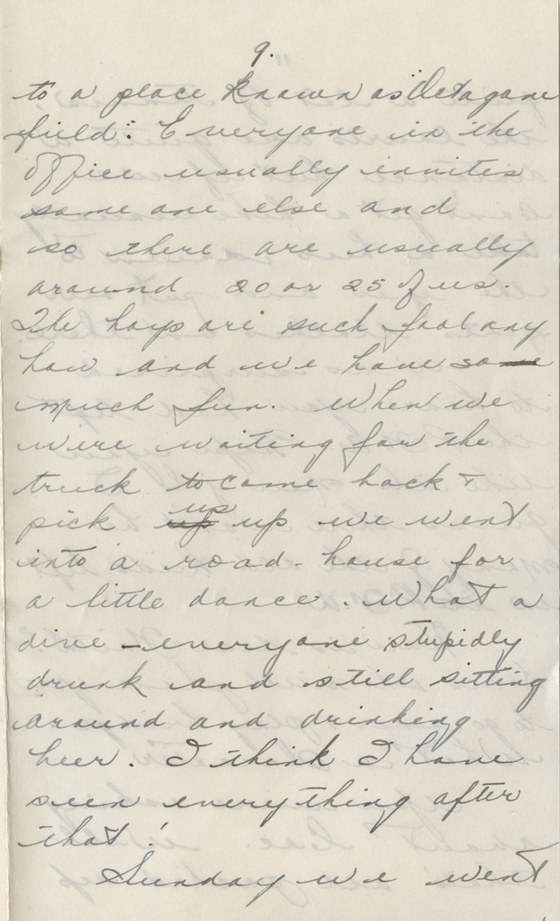 9.
to a place known as "Octagone
field". Everyone in the
office usually invites
some one else and
so there are usually
around 20 or 25 of us.
The boys are such fool any
how and we have so me
much fun. When we
were waiting for the
truck to come back &
pick up up up we went
into a road-house for
a little dance. What a
dive - everyone stupidly
drunk and still sitting
around and drinking
beer. I think I have
seen everything after
that!
Sunday we went